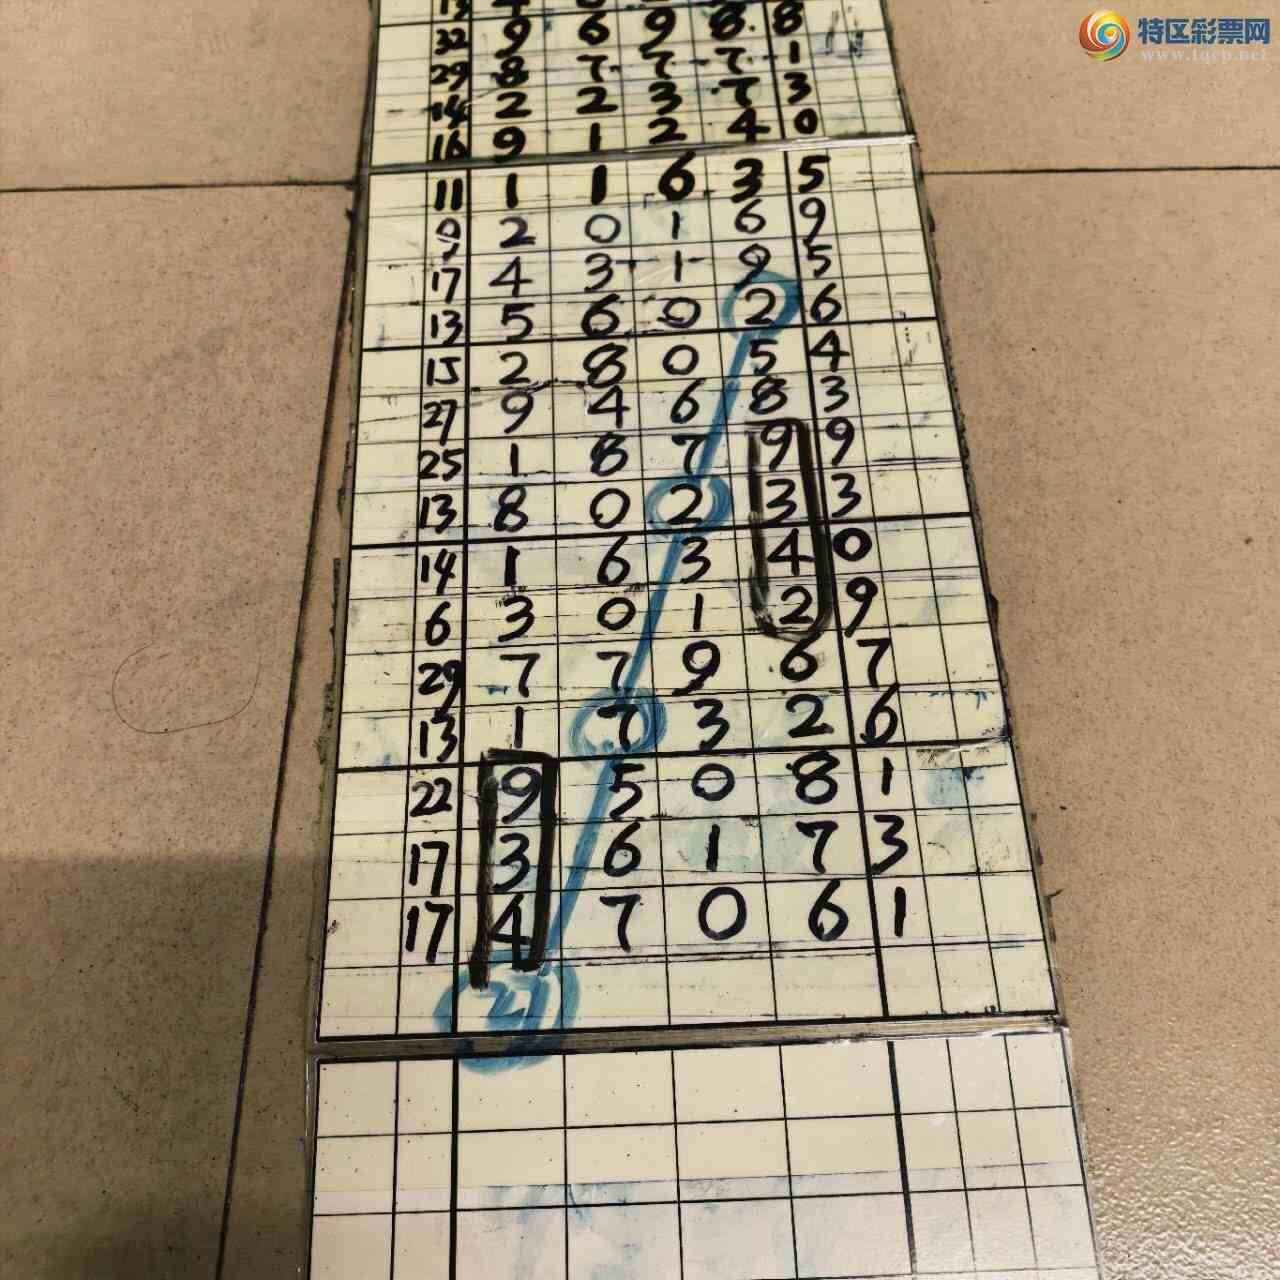 特区彩票网
www.tqcp.net
32 9 6 9 8 8
29 8 7 7 7 1
14 2 2 3 7 3
16 9 1 2 4 0
11 1 1 6 3 5
9 2 0 1 6 9
17 4 3 1 9 5
13 5 6 0 2 6
15 2 8 0 5 4
27 9 4 6 8 3
25 1 8 7 9 9
13 8 0 2 3 3
14 1 6 3 4 0
6 3 0 1 2 9
29 7 7 9 6 7
13 1 7 3 2 6
22 9 5 0 8 1
17 3 6 1 7 3
17 4 7 0 6 1
2